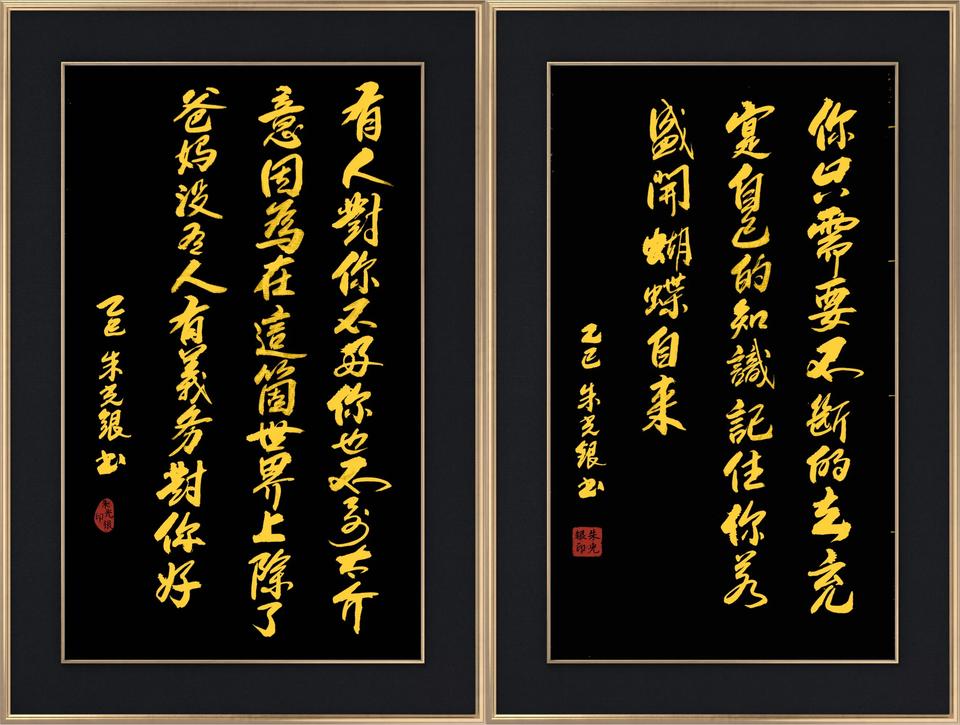 有人對你不好你也不要太介
意因為在這箇世界上除了
爸妈没有人有義务對你好
乙巳 朱光銀书
朱光銀印
你只需要不斷的去充
寔自己的知識記住你若
盛開蝴蝶自来
乙巳 朱光銀书
朱光
銀印